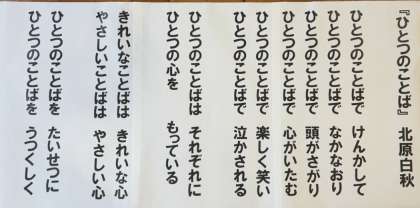 『ひとつのことば』 北原白秋
ひとつのことばで けんかして
ひとつのことばで なかなおり
ひとつのことばで 頭がさがり
ひとつのことばで 心がいたむ
ひとつのことばで 楽しく笑い
ひとつのことばで 泣かされる
ひとつのことばは それぞれに
ひとつの心を もっている
きれいなことばは きれいな心
やさしいことばは やさしい心
ひとつのことばを たいせつに
ひとつのことばを うつくしく